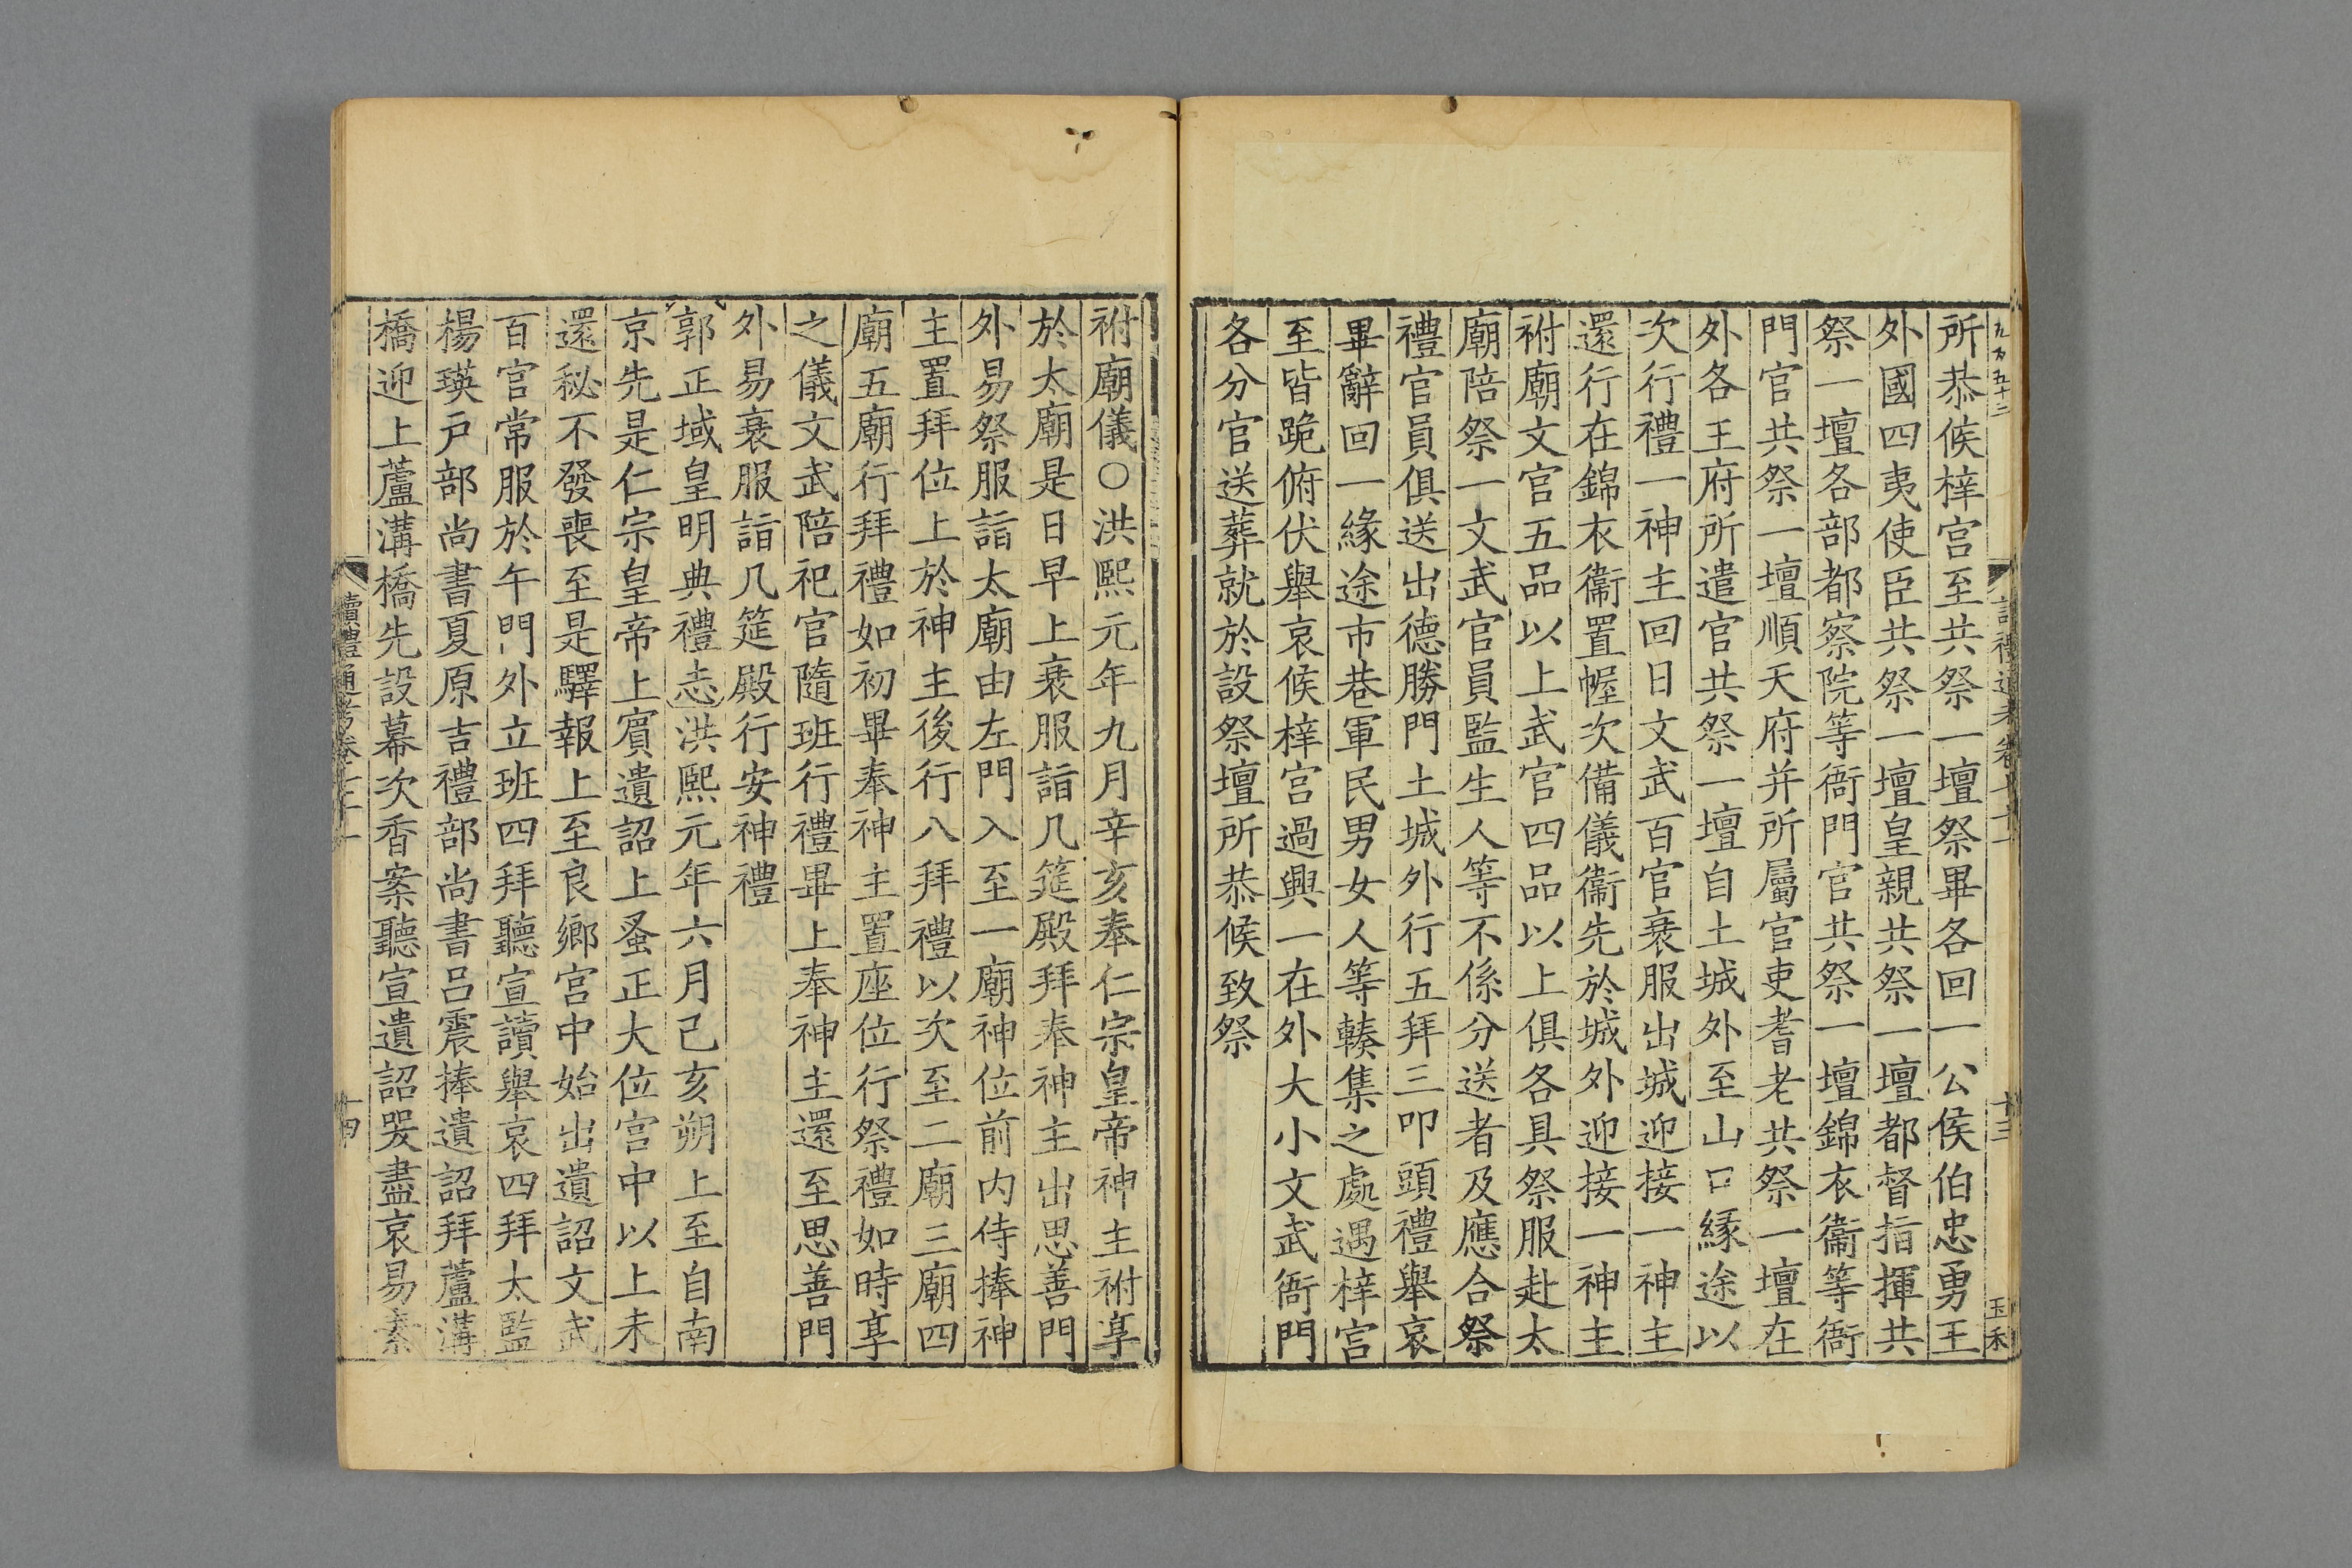 所恭候梓宫至共祭一壇祭畢各回一公侯伯忠勇王
外國四夷使臣共祭一壇皇親共祭一壇都督指揮共
祭一壇各部都察院等衙門官共祭一壇錦衣衞等衙
門官共祭一壇順天府并所屬官吏耆老共祭一壇在
外各王府所遣官共祭一壇自土城外至山口縁途以
次行禮一神主回日文武百官衰服出城迎接一神主
還行在錦衣衞置幄次備儀衞先於城外迎接一神主
祔廟文官五品以上武官四品以上俱各具祭服赴太
廟陪祭一文武官員監生人等不係分送者及應合祭
禮官員俱送出德勝門土城外行五拜三叩頭禮舉哀
畢辭回一緣途市巷軍民男女人等輳集之處遇梓宫
至皆跪俯伏舉哀候梓宫過興一在外大小文武衙門
各分官送葬就於設祭壇所恭候致祭
十三
玉禾
祔廟儀○洪熙元年九月辛亥奉仁宗皇帝神主祔享
於太廟是日早上衰服詣几筵殿拜奉神主出思善門
外易祭服詣太廟由左門入至一廟神位前内侍捧神
主置拜位上於神主後行八拜禮以次至二廟三廟四
廟五廟行拜禮如初畢奉神主置座位行祭禮如時享
之儀文武陪祀官隨班行禮畢上奉神主還至思善門
外易衰服詣几筵殿行安神禮
郭正域皇明典禮志洪熙元年六月己亥朔上至自南
京先是仁宗皇帝上賔遺詔上蚤正大位宫中以上未
還秘不發喪至是驛報上至良鄉宫中始出遺詔文武
百官常服於午門外立班四拜聽宣讀舉哀四拜太監
楊瑛戸部尚書夏原吉禮部尚書呂震捧遺詔拜蘆溝
橋迎上蘆溝橋先設幕次香案聽宣遺詔哭盡哀易素
讀禮通考卷
十四